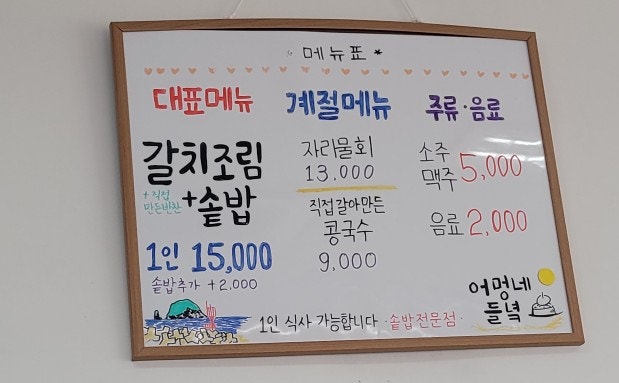 * 메뉴표 *
대표메뉴
갈치조림
+직접
만든반찬
+솥밥
1인 15,000
솥밥추가 +2,000
계절메뉴
자리물회
13,000
직접갈아만든
콩국수
9,000
주류·음료
소주
맥주 5,000
음료 2,000
어멍네
들녘
1인 식사 가능합니다 ·솥밥전문점·